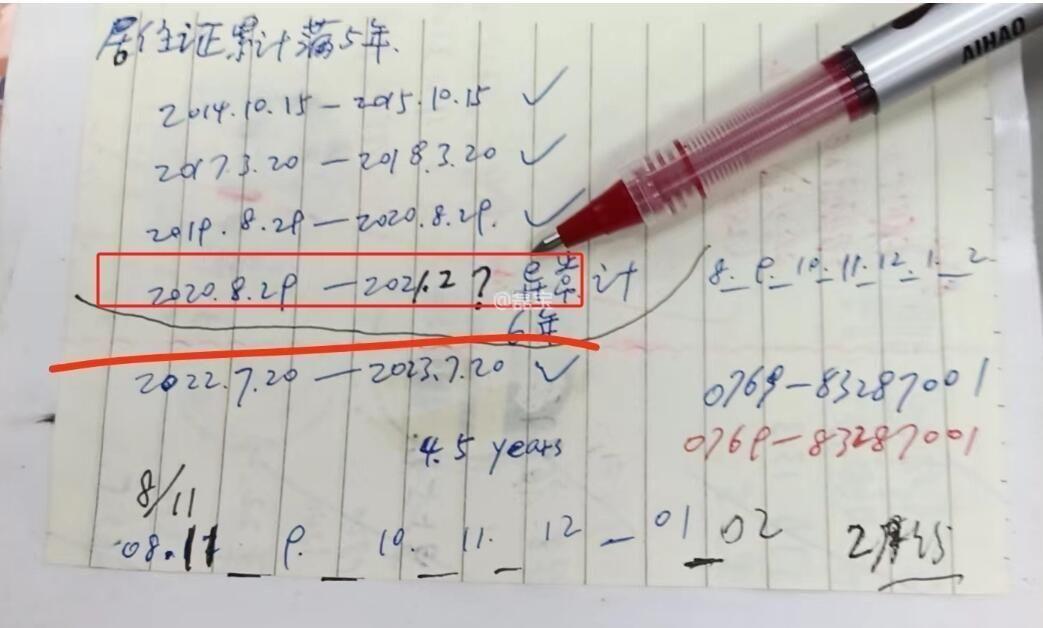 居住证累计满5年.
AIHAO
2014.10.15 — 2015.10.15 ✓
2017.3.20 — 2018.3.20 ✓
2019.8.29 — 2020.8.29. ✓
2020.8.29 — 2021.2 ? 是累计
8. 9. 10. 11. 12. 1. 2
@磊宝
6年
2022.7.20 — 2023.7.20 ✓
0769-83287001
4.5 years
0769-83287001
8/11
08.11 9. 10. 11. 12 — 01 02